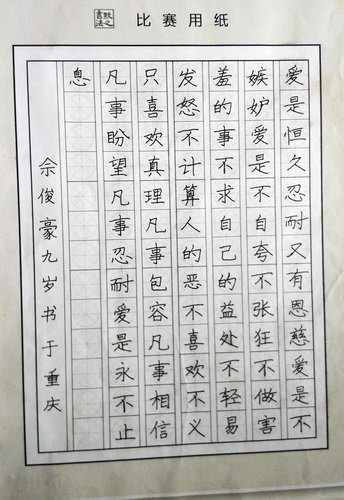 比赛用纸
爱是恒久忍耐又有恩慈爱是不
嫉妒爱是不自夸不张狂不做害
羞的事不求自己的益处不轻易
发怒不计算人的恶不喜欢不义
只喜欢真理凡事包容凡事相信
凡事盼望凡事忍耐爱是永不止
息
佘俊豪九岁书于重庆